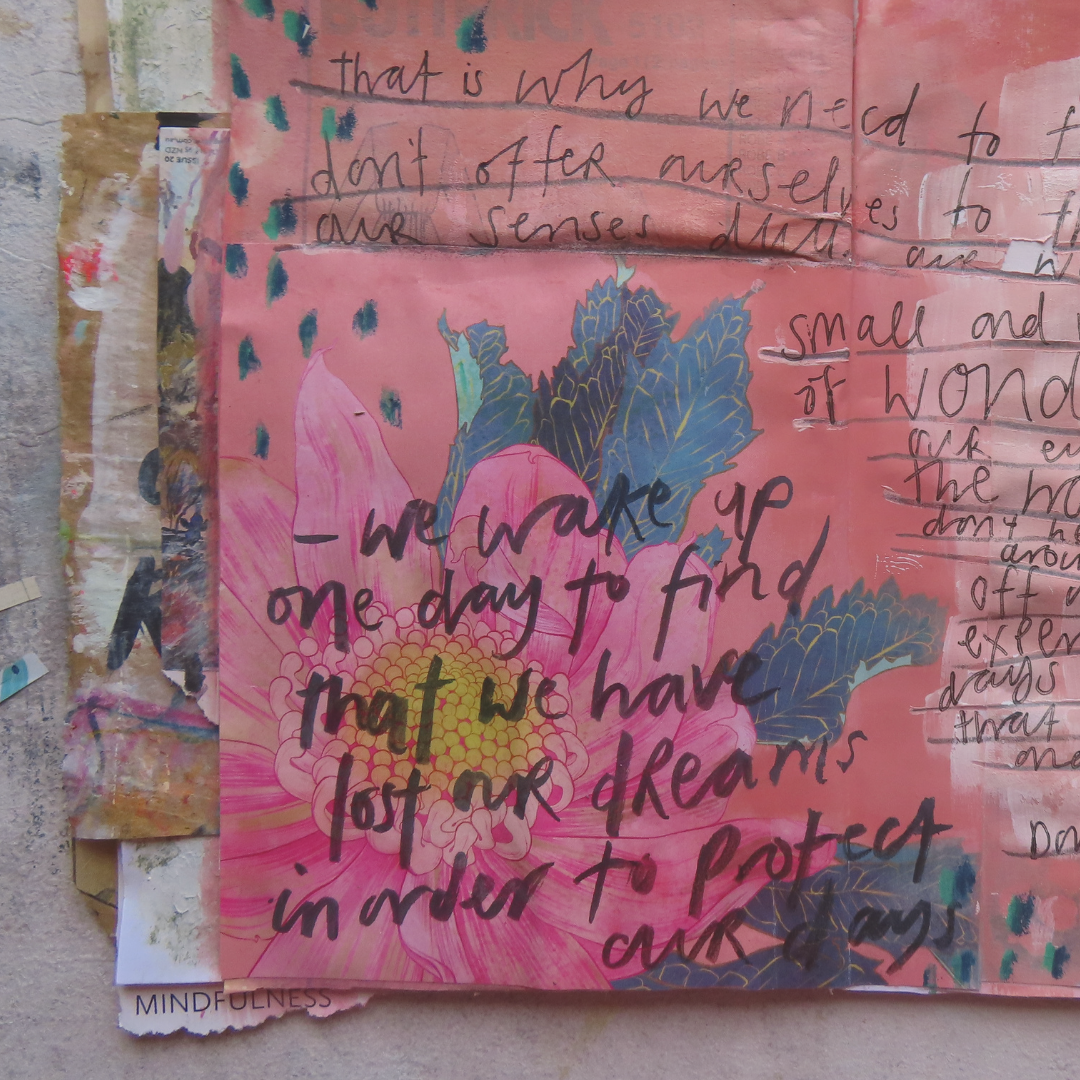 that is why we need to f
don't offer ourselves to th
our senses dull. are w
small and
of wond
our
the wo
don't he
arou
off a
exper
days
that
and
– we wake up
one day to find
that we have
lost our dreams
in order to protect
our days
MINDFULNESS
ISSUE 20